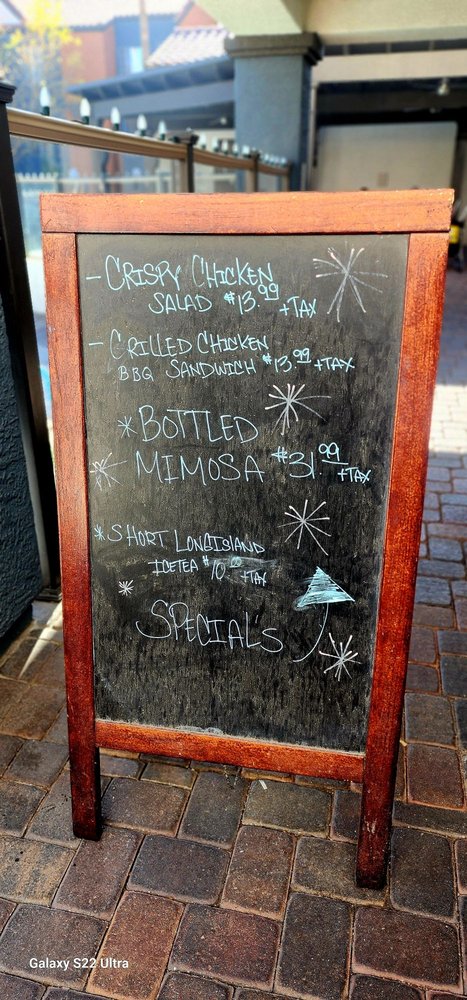 - CRISPY CHICKEN
SALAD $13.99 +TAX
- GRILLED CHICKEN
BBQ SANDWICH $13.99 +TAX
* BOTTLED
MIMOSA $31.99 +TAX
* SHORT LONGISLAND
ICETEA $10.00 +TAX
SPECIAL'S
Galaxy S22 Ultra